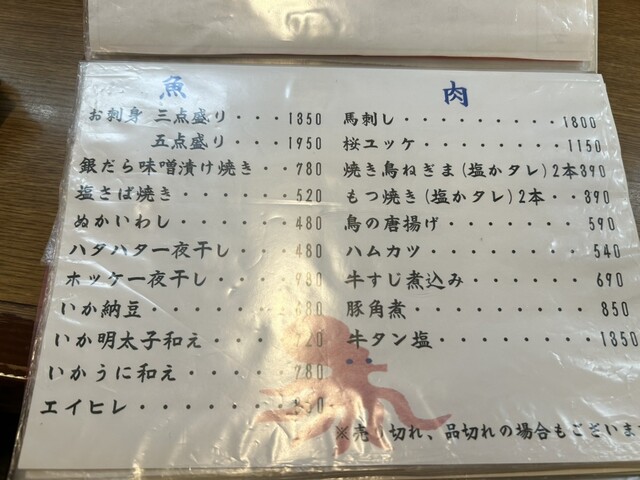 魚
お刺身 三点盛り・・・1350
五点盛り・・・1950
銀だら味噌漬け焼き・・780
塩さば焼き・・・・・・520
ぬかいわし・・・・・・480
ハタハタ一夜干し・・・480
ホッケ一夜干し・・・980
いか納豆・・・・・・680
いか明太子和え・・・720
いかうに和え・・・・780
エイヒレ・・・・・・・
肉
馬刺し・・・・・・・・・1800
桜ユッケ・・・・・・・・1150
焼き鳥ねぎま(塩かタレ)2本390
もつ焼き(塩かタレ)2本・・390
鳥の唐揚げ・・・・・・・590
ハムカツ・・・・・・・・540
牛すじ煮込み・・・・・・690
豚角煮・・・・・・・・・850
牛タン塩・・・・・・・・1350
※売り切れ、品切れの場合もございます